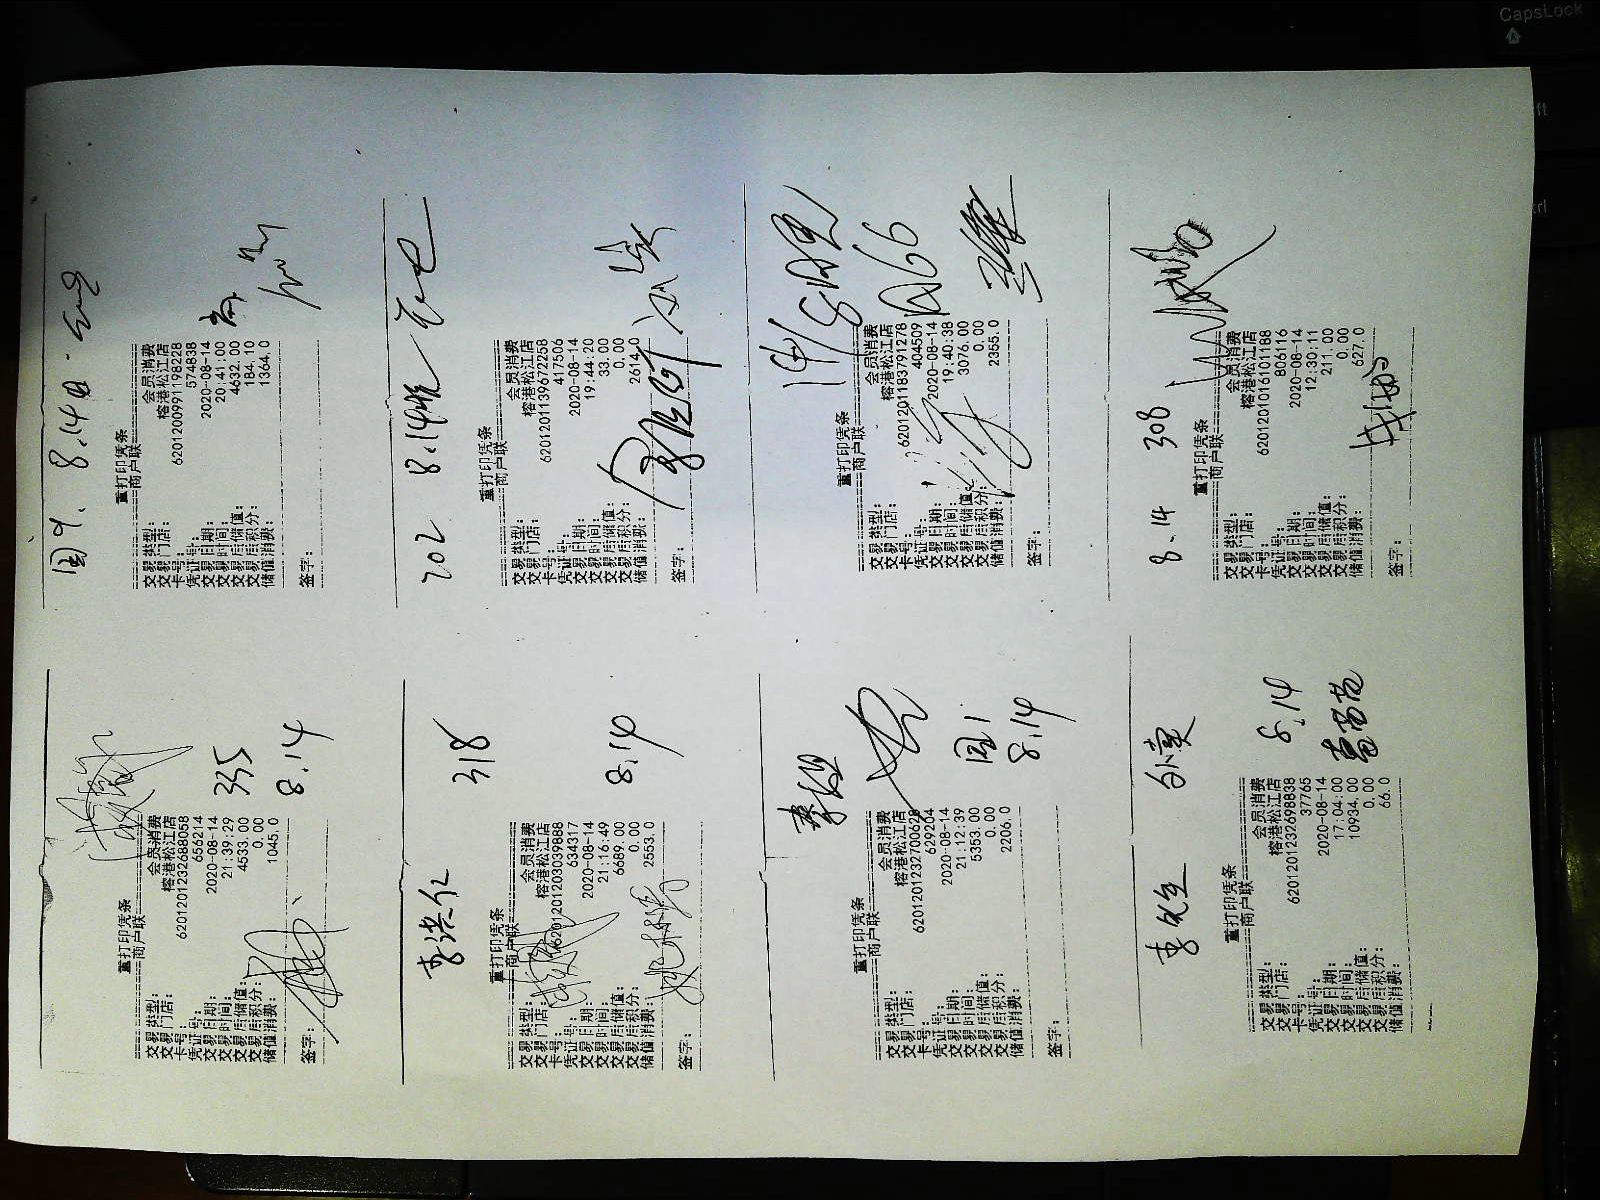 335
8.14
重打印凭条
商户联
交易类型: 会员消费
交易门店: 榕港松江店
卡号: 6201201232688058
凭证号: 656214
交易日期: 2020-08-14
交易时间: 21:39:29
交易后储值: 4533.00
交易后积分: 0.00
储值消费: 1045.0
签字:
8.14
重打印凭条
商户联
交易类型: 会员消费
交易门店: 榕港松江店
卡号: 6201200991198228
凭证号: 574838
交易日期: 2020-08-14
交易时间: 20:41:00
交易后储值: 4632.00
交易后积分: 184.10
储值消费: 1364.0
签字:
李洪仁 318
8.14
重打印凭条
商户联
交易类型: 会员消费
交易门店: 榕港松江店
卡号: 6201201203039886
凭证号: 634317
交易日期: 2020-08-14
交易时间: 21:16:49
交易后储值: 6689.00
交易后积分: 0.00
储值消费: 2553.0
签字:
202 8.14
重打印凭条
商户联
交易类型: 会员消费
交易门店: 榕港松江店
卡号: 6201201139672258
凭证号: 417506
交易日期: 2020-08-14
交易时间: 19:44:20
交易后储值: 33.00
交易后积分: 0.00
储值消费: 2614.0
签字:
8.14
重打印凭条
商户联
交易类型: 会员消费
交易门店: 榕港松江店
卡号: 6201201232700628
凭证号: 629204
交易日期: 2020-08-14
交易时间: 21:12:39
交易后储值: 5353.00
交易后积分: 0.00
储值消费: 2206.0
签字:
14/8
A66
重打印凭条
商户联
交易类型: 会员消费
交易门店: 榕港松江店
卡号: 6201201183791278
凭证号: 404509
交易日期: 2020-08-14
交易时间: 19:40:38
交易后储值: 3076.00
交易后积分: 0.00
储值消费: 2355.0
签字:
李先生 外卖
8.14
重打印凭条
商户联
交易类型: 会员消费
交易门店: 榕港松江店
卡号: 6201201232698838
凭证号: 37765
交易日期: 2020-08-14
交易时间: 17:04:00
交易后储值: 10934.00
交易后积分: 0.00
储值消费: 66.0
8.14 308
重打印凭条
商户联
交易类型: 会员消费
交易门店: 榕港松江店
卡号: 6201201016101188
凭证号: 806116
交易日期: 2020-08-14
交易时间: 12:30:11
交易后储值: 211.00
交易后积分: 0.00
储值消费: 627.0
签字: